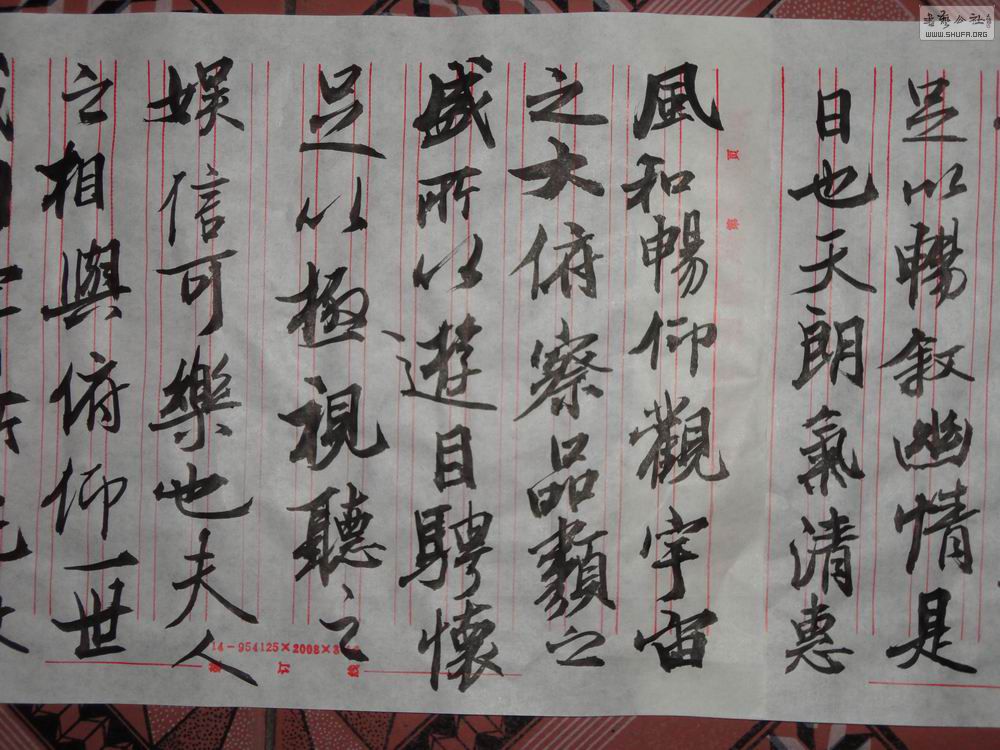 足以暢叙幽情是
日也天朗氣清惠
風和暢仰觀宇宙
之大俯察品類之
盛所以遊目騁懷
足以極視聽之
娱信可樂也夫人
之相與俯仰一世
頁 第
14-954125×2008×3
訂 線
書藝公社
WWW.SHUFA.ORG